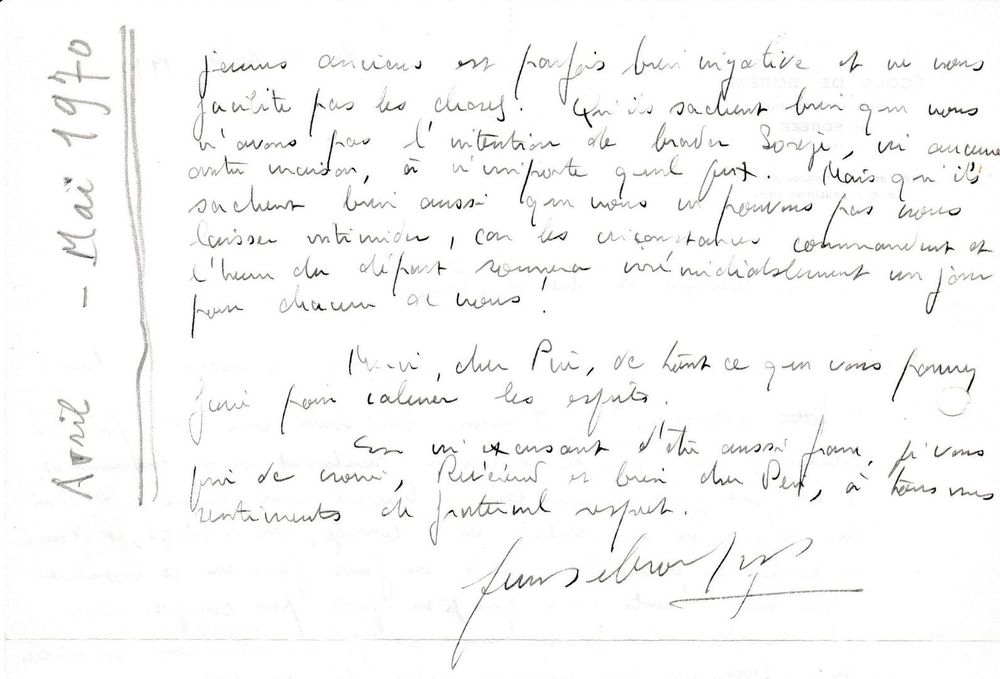 Avril - Maï 1970
jeunes anciens est parfois bien négative et ne nous
facilite pas les choses. Qu'ils sachent bien que nous
n'avons pas l'intention de brader Sorèze, ni aucune
autre maison, à n'importe quel prix. Mais qu'ils
sachent bien aussi que nous ne pouvons pas nous
laisser intimider, car les circonstances commandent et
l'heure du départ sonnera irrémédiablement un jour
pour chacun de nous !
Merci, cher Père, de tout ce que vous pourrez
faire pour calmer les esprits.
En m'excusant d'être aussi franc, je vous
prie de croire, Révérend et bien cher Père, à tous mes
sentiments de fraternel respect.
ÉCOLE DE SORÈZE